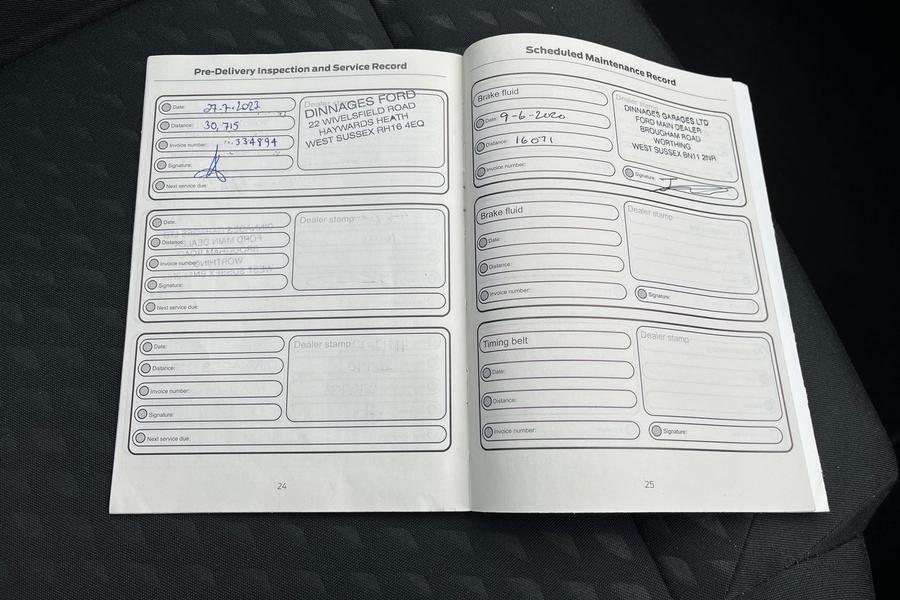 Pre-Delivery Inspection and Service Record
Date: 27.7.2022
Distance: 30,715
Invoice number: 334894
Signature:
Next service due:
Dealer stamp
DINNAGES FORD
22 WIVELSFIELD ROAD
HAYWARDS HEATH
WEST SUSSEX RH16 4EQ
Date:
Distance:
Invoice number:
Signature:
Next service due:
Dealer stamp
Date:
Distance:
Invoice number:
Signature:
Next service due:
Dealer stamp
24
Scheduled Maintenance Record
Brake fluid
Date: 9-6-2020
Distance: 16071
Invoice number:
Dealer stamp
DINNAGES GARAGES LTD
FORD MAIN DEALER
BROUGHAM ROAD
WORTHING
WEST SUSSEX BN11 2NR
Signature:
Brake fluid
Date:
Distance:
Invoice number:
Dealer stamp
Signature:
Timing belt
Date:
Distance:
Invoice number:
Dealer stamp
Signature:
25